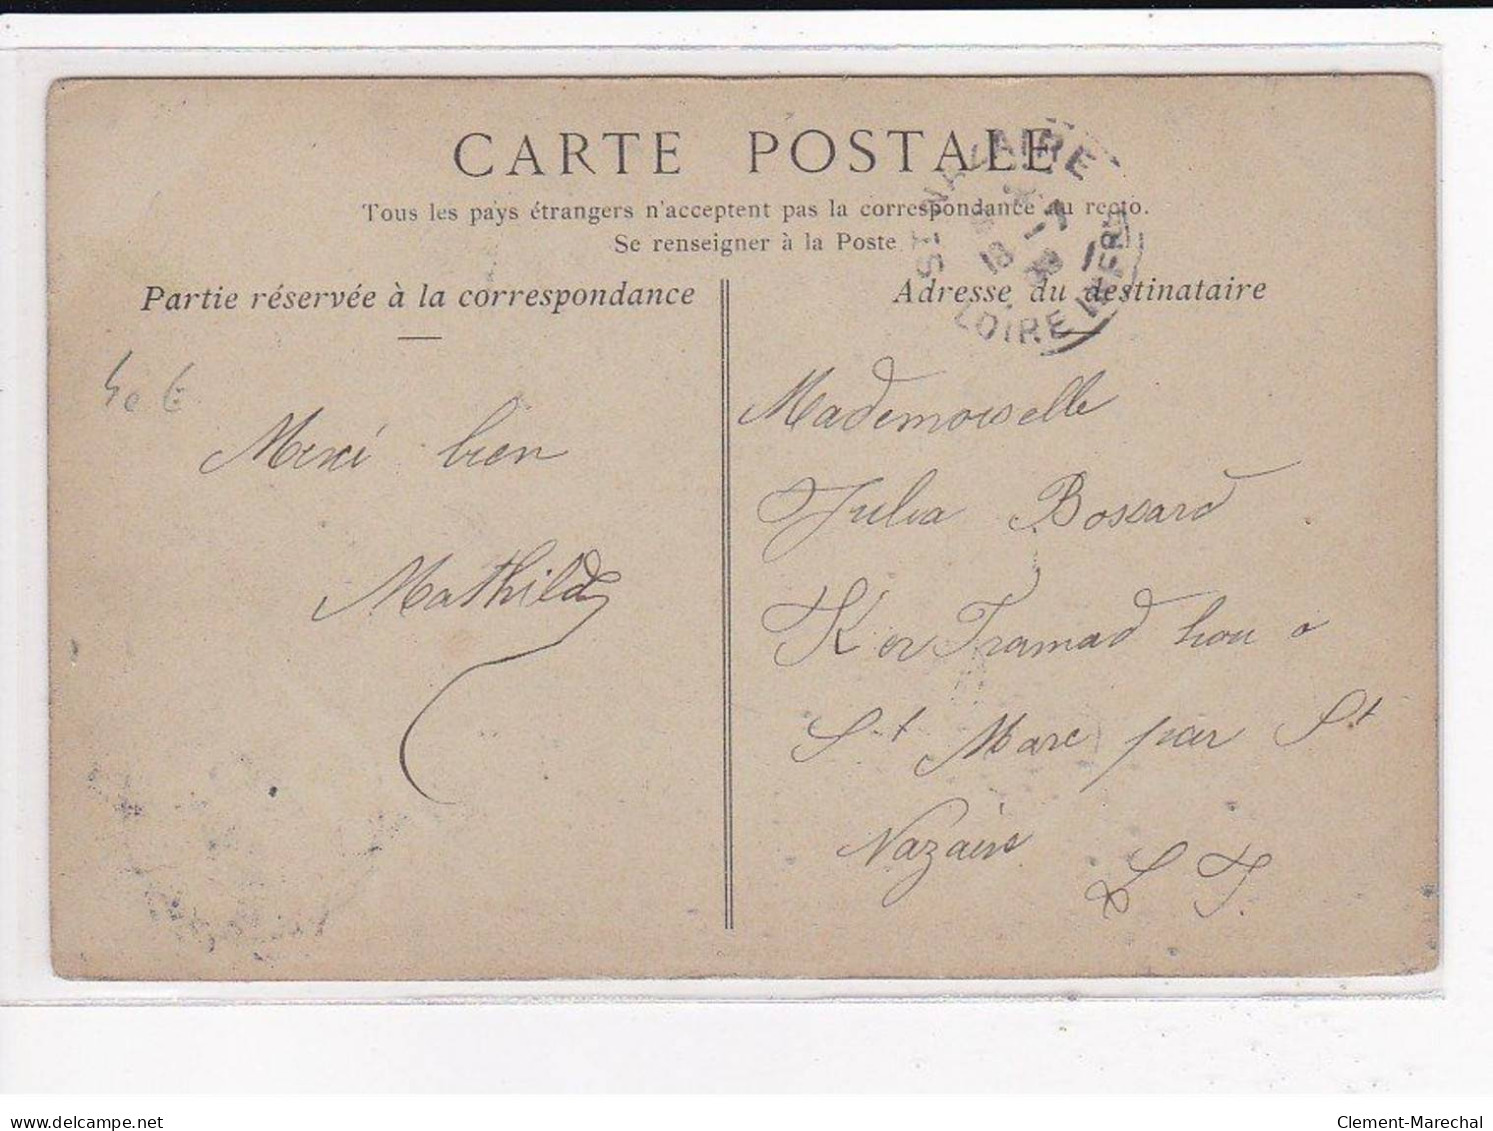 CARTE POSTALE
Tous les pays étrangers n'acceptent pas la correspondance au recto.
Se renseigner à la Poste
Partie réservée à la correspondance
Adresse du destinataire
ST NAZAIRE
LOIRE INFRE
40 €
Merci bien
Mathilde
Mademoiselle
Julia Bossard
Ker Tramad hou o
St Marc par St
Nazaire
L I.
delcampe.net
Clement-Marechal